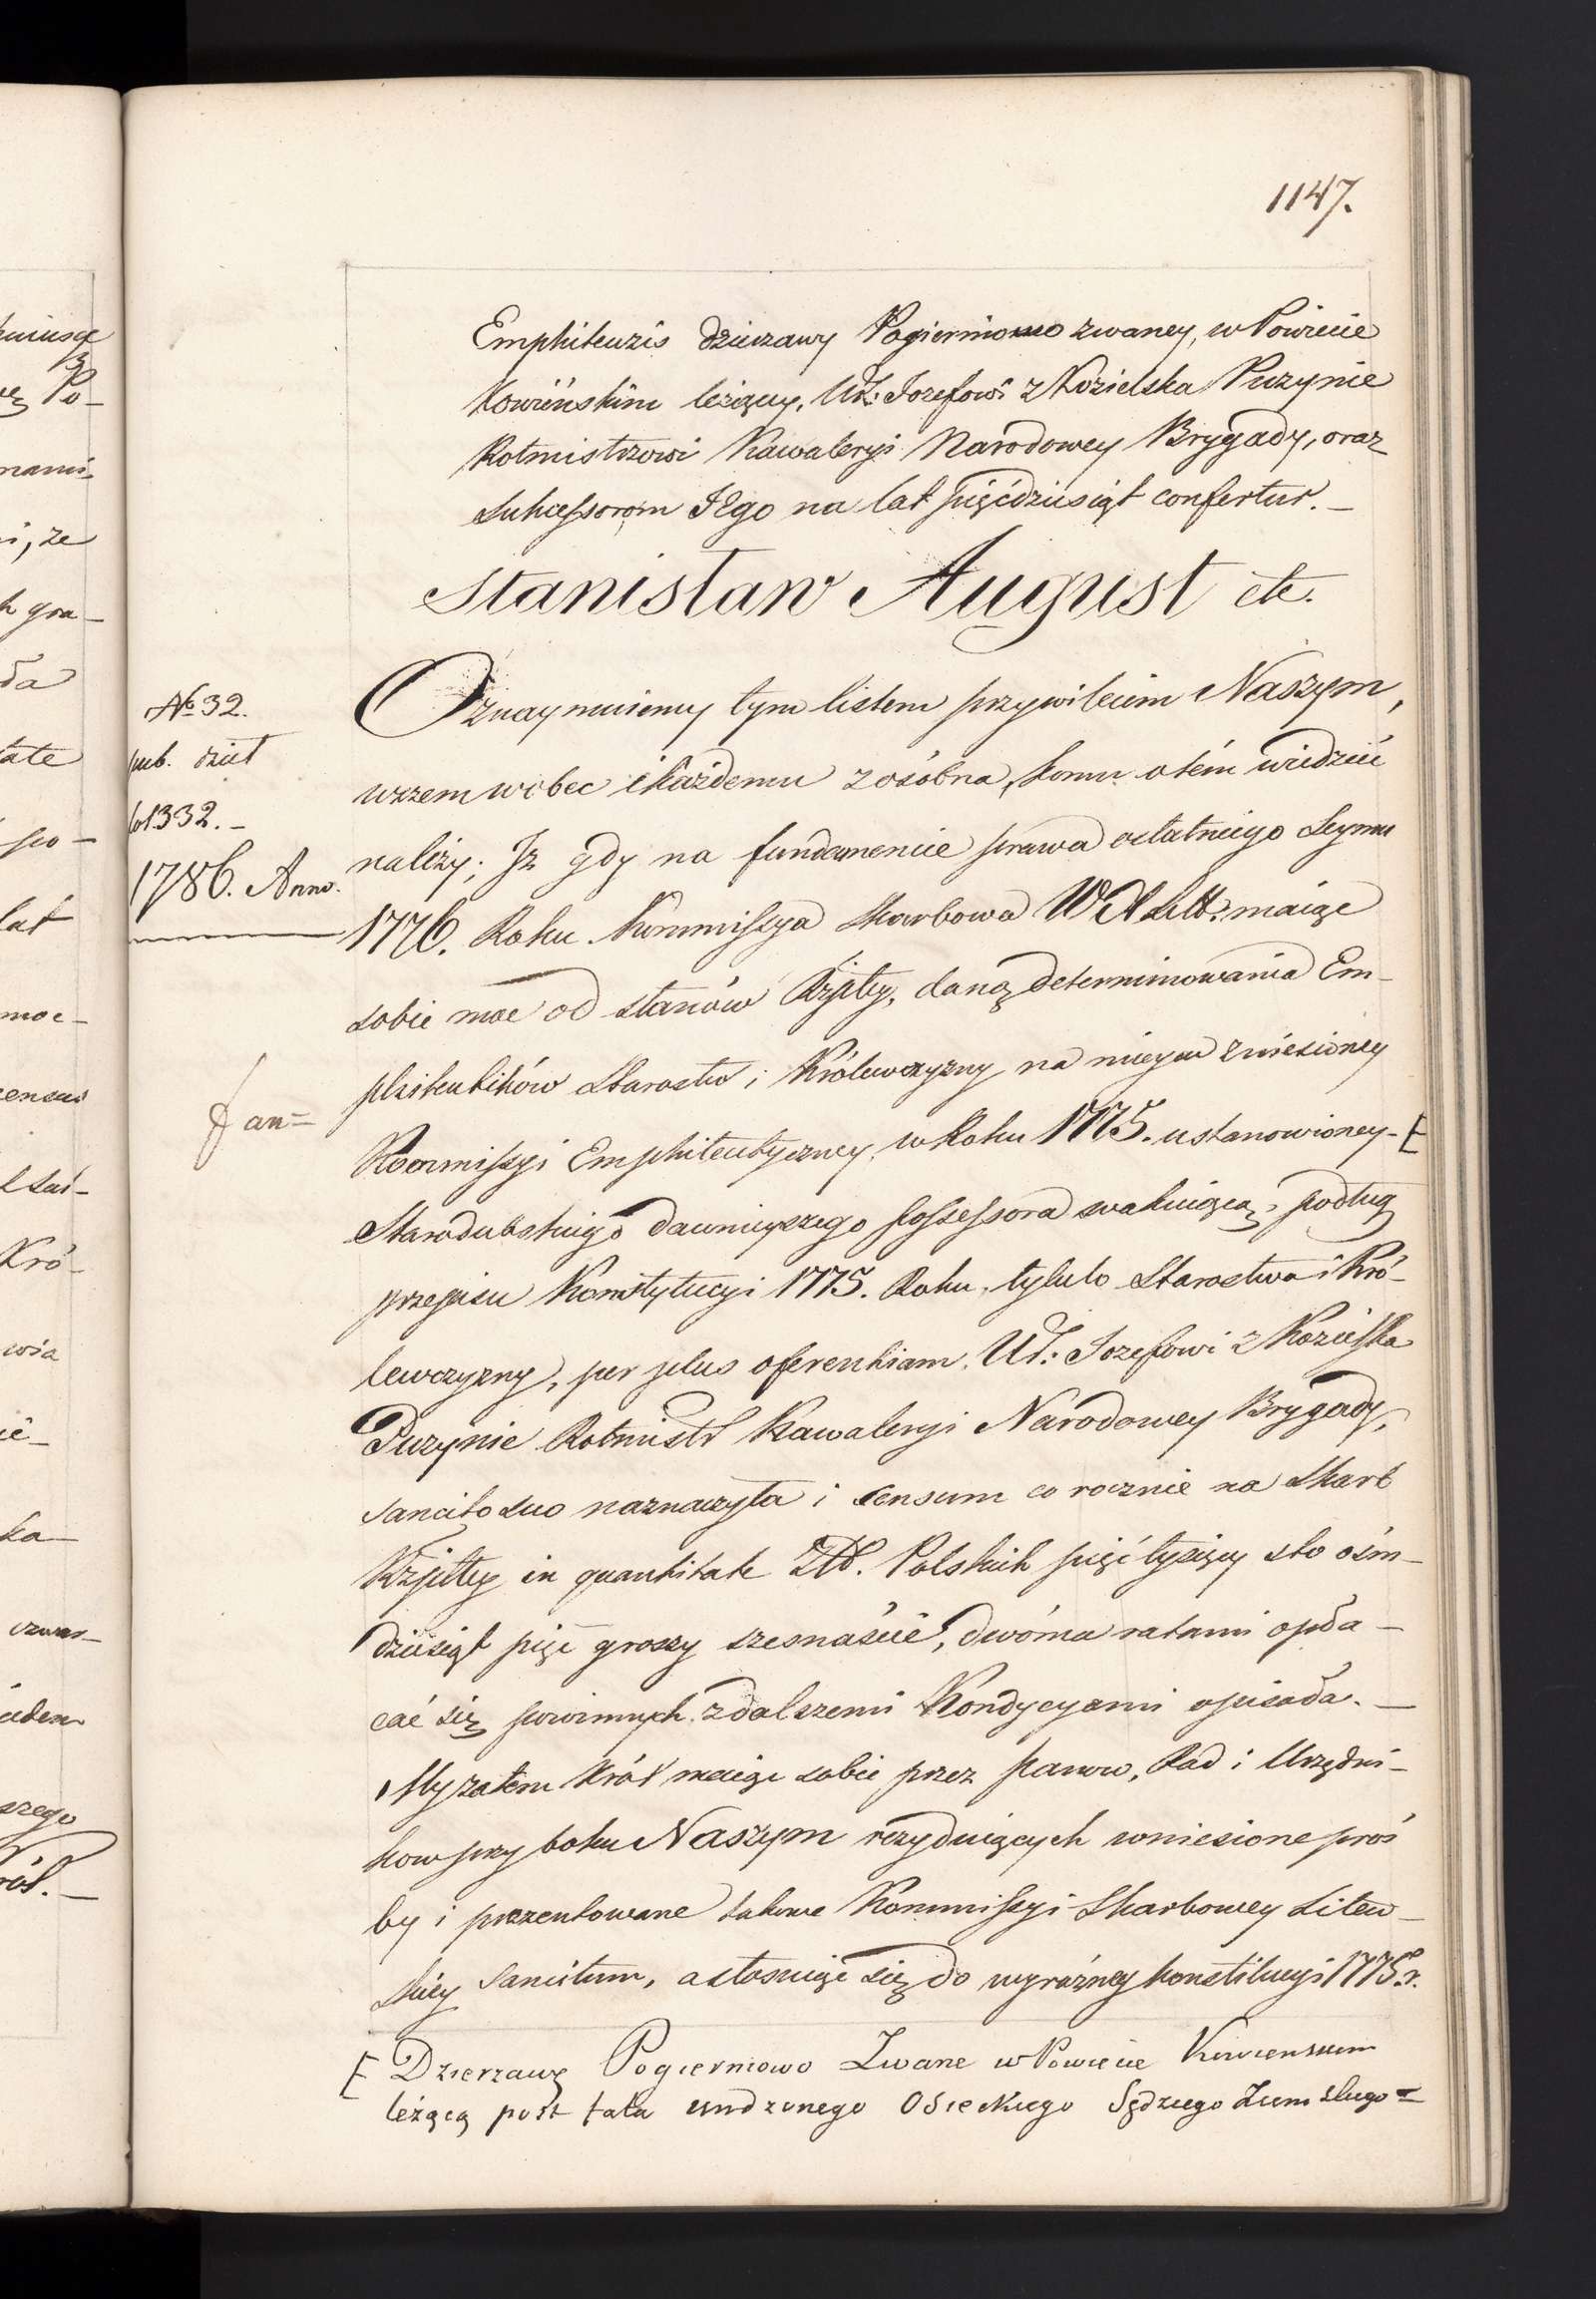 1147.
Emphiteuzis dzierzawy Pogierniowo zwaney, w Powiecie
Kowieńskim leżącey, Ur: Jozefowi z Kozielska Puzynie
Rotmistrzowi Kawaleryi Narodowey Brygady, oraz
Sukcessorom Jego na lat pięćdziesiąt confertur. —
Stanisław August etc.
Oznaymuiemy tym listem przywileiem Naszym,
wszem wobec i każdemu z osóbna, komu o tém wiedzieć
należy; Iż gdy na fundamencie prawa ostatniego Seymu
1776. Roku Kommissya Skarbowa W X Litt: maiąc
sobie moc od stanów Rzpltey, daną determinowania Em-
phiteutików Starostw i Królewczyzny na mieysce zniesioney
Kommissyi Emphiteutyczney, w Roku 1775. ustanowioney - [
Starodubskiego dawnieyszego possessora wakuiącą, podług
przepisu Konstytucyi 1775. Roku, tytuło Starostwa i Kró-
lewczyzny, per plus oferentiam, Ur: Jozefowi z Kozielska
Puzynie Rotmistr Kawaleryi Narodowey Brygady,
sancito suo naznaczyła i censum co rocznie na Skarb
Rzpltey in quantitate Złł. Polskich pięć tysięcy sto ośm-
dziesiąt pięć groszy szesnaście, dwóma ratami opła-
cać się powinnych z dalszemi Kondycyami opisała. —
My zatem Król maiąc sobie przez Panow, Rad i Urzędni-
kow przy boku Naszym rezyduiących wniesione proś
by i prezentowane takowe Kommissyi Skarbowey Litew-
skiey Sancitum, a stosuiąc się do wyraźney konstitucyi 1775. r.
[ Dzierzawę Pogierniowo Zwane w Powiecie Kowienskim
leżącą post fata Osieckiego Sędziego Ziemskiego =
No 32.
pub. dzieł
fol 332. —
1786. Anno.
an=